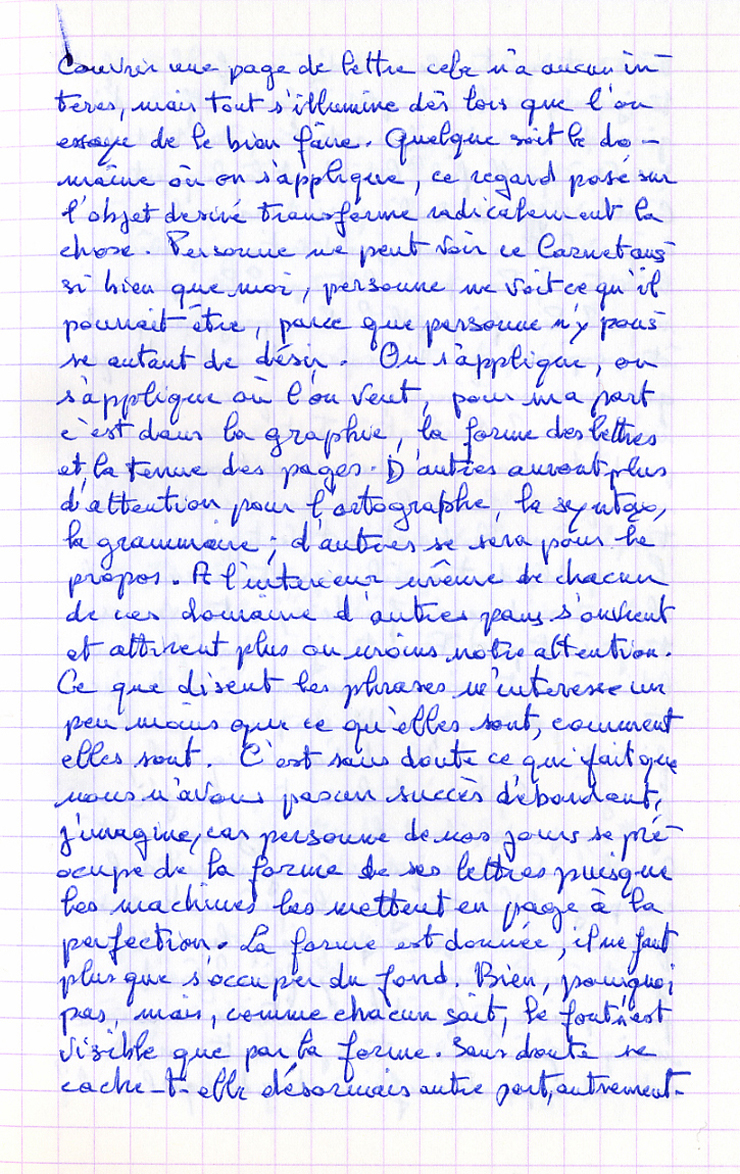 Couvrir une page de lettre cela n'a aucun in-
téres, mais tout s'illumine dès lors que l'on
essaye de le bien faire. Quelque soit le do-
maine où on s'applique, ce regard posé sur
l'objet desiré transforme radicalement la
chose. Personne ne peut voir ce Carnet aus-
si bien que moi, personne ne voit ce qu'il
pourrait être, parce que personne n'y pous-
se autant de désir. On s'applique, on
s'applique où l'on veut, pour ma part
c'est dans la graphie, la forme des lettres
et la tenue des pages. D'autres auront plus
d'attention pour l'ortographe, la syntaxe,
la grammaire; d'autres se sera pour le
propos. A l'interieur même de chacun
de ces domaine d'autres pans s'ouvrent
et attirent plus ou moins notre attention.
Ce que disent les phrases m'interesse un
peu moins que ce qu'elles sont, comment
elles sont. C'est sans doute ce qui fait que
nous n'avons pas un succès débordant,
j'imagine, car personne de nos jours se pré-
ocupe de la forme de ses lettres puisque
les machines les mettent en page à la
perfection. La forme est donnée, il ne faut
plus que s'occuper du fond. Bien, pourquoi
pas, mais, comme chacun sait, le font n'est
visible que par la forme. Sans doute se
cache-t-elle désormais autre part, autrement.